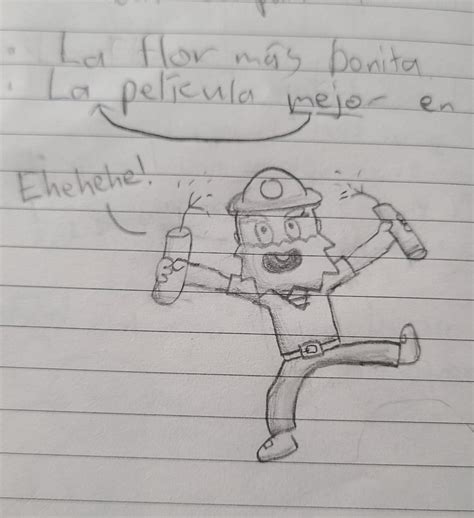 · La flor más bonita
· La película mejor en
Ehehehe!